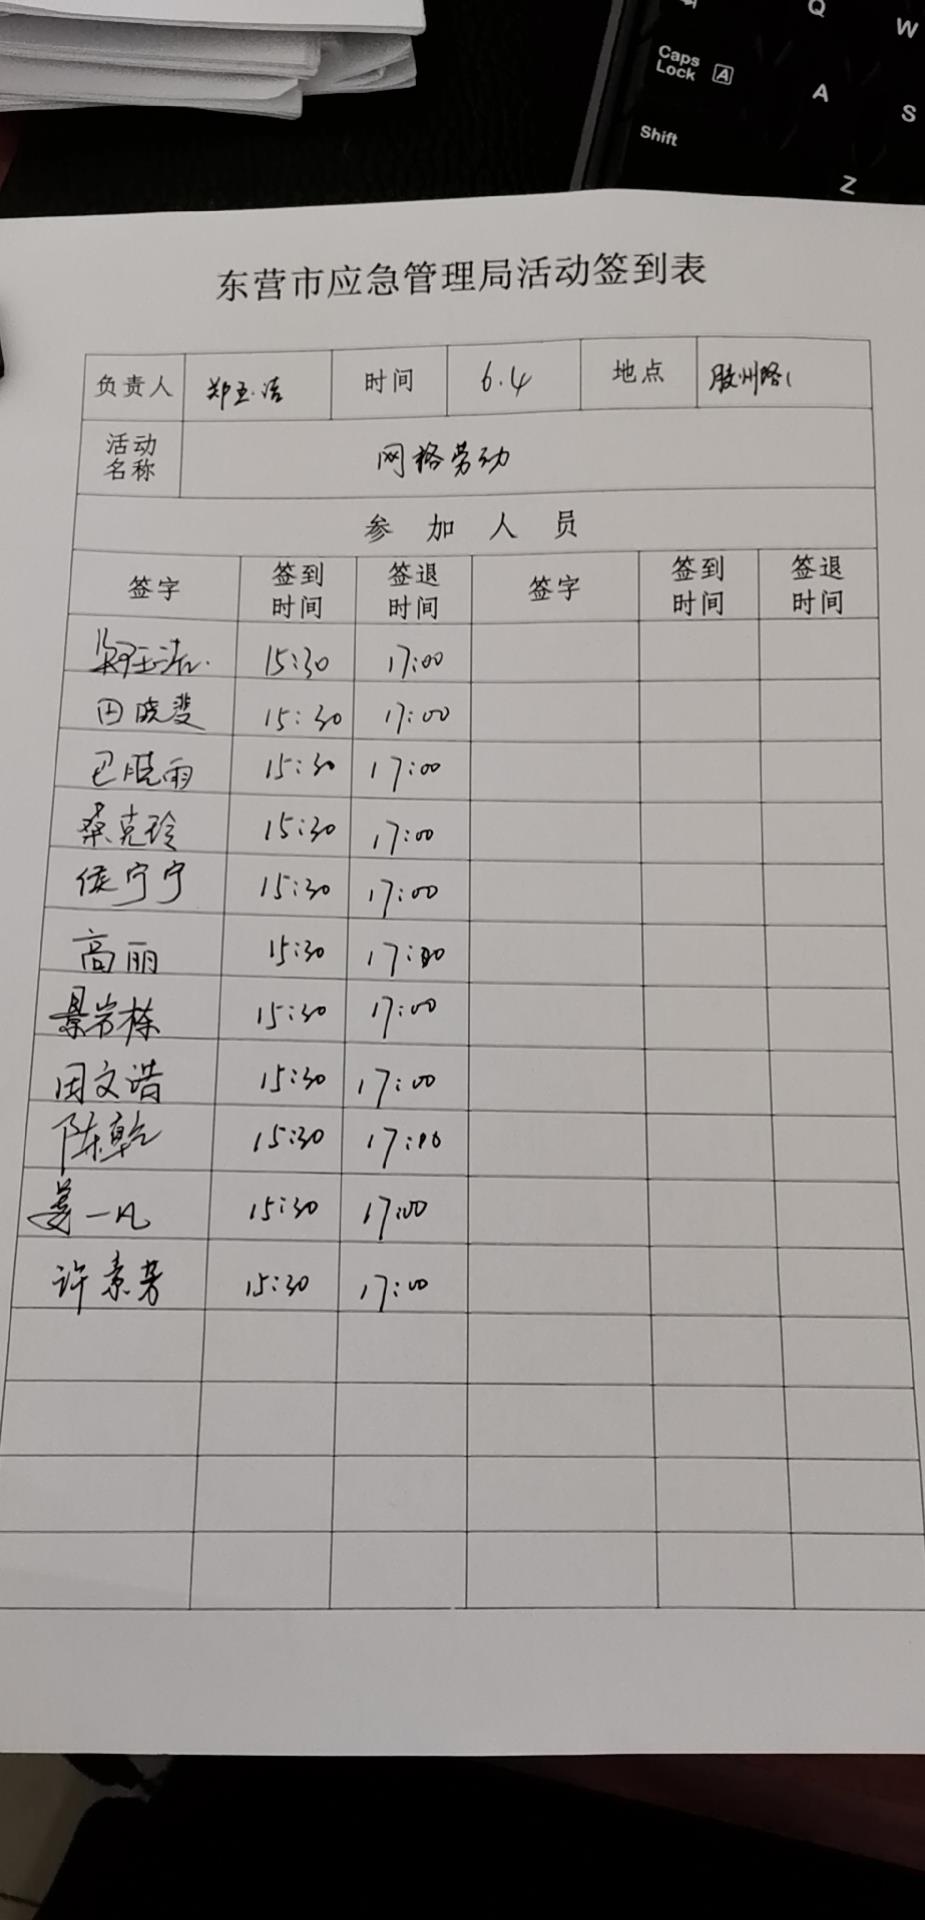 Q W
Caps Lock A A S
Shift Z
东营市应急管理局活动签到表
负责人 郑玉洁 时间 6.4 地点 胶州路
活动名称 网格劳动
参加人员
签字 签到时间 签退时间 签字 签到时间 签退时间
郑玉洁 15:30 17:00
田晓斐 15:30 17:00
巴晓雨 15:30 17:00
桑克玲 15:30 17:00
侯宁宁 15:30 17:00
高丽 15:30 17:00
景岩栋 15:30 17:00
田文浩 15:30 17:00
陈乾 15:30 17:00
姜一凡 15:30 17:00
许素芳 15:30 17:00